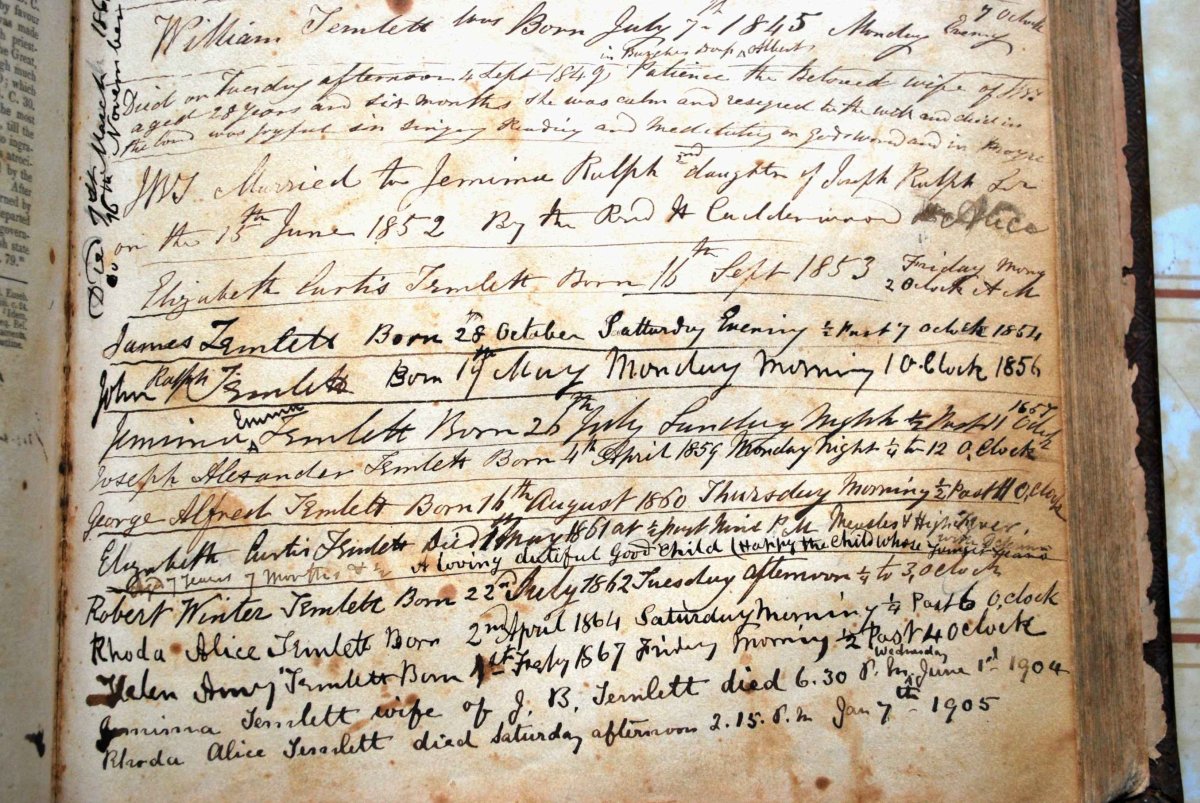 William Temlett was Born July 7th 1845 Monday Evening 7 Oclock
in Burghers Dorp Albert
Died on Tuesday afternoon 4 Sept 1849 Patience the Beloved wife of
aged 28 years and six months she was calm and resigned to the will and died in
the Lord was joyful in singing Reading and Meditating on Gods word and in
Married to Jemima Ralph 2nd daughter of Joseph Ralph
on the 15th June 1852 By the Revd H Calderwood Alice
Elizabeth Curtis Temlett Born 16th Sept 1853 Friday Mong
2 Oclock A M
James Temlett Born 28 October Satturday Evening ½ Past 7 Oclock 1854
John Ralph Temlett Born 19th May Monday Morning 1 O.Clock 1856
Jemima Emma Temlett Born 26th July Sunday Night ½ Past 11 Oclk 1857
Joseph Alexander Temlett Born 4th April 1859 Monday Night ¼ to 12 O.Clock
George Alfred Temlett Born 16th August 1860 Thursday Morning ½ Past 11 O.Clock
Elizabeth Curtis Temlett Died May 1861 at ½ past Nine P.M Measles & High Fever.
7 Years 7 Months & A loving dutiful Good Child (Happy the Child whose Years
Robert Winter Temlett Born 22nd July 1862 Tuesday afternoon ¼ to 3, Oclock
Rhoda Alice Temlett Born 2nd April 1864 Saturday Morning ¼ Past 6 O,clock
Helen Amy Temlett Born 1st Feby 1867 Friday Morning ½ Past 4 Oclock
Jemima Temlett wife of J. B. Temlett died 6.30 P.M. Wednesday June 1st 1904
Rhoda Alice Temlett died Saturday afternoon 2.15. P.M Jan 7th 1905
Died 7th March
16th November